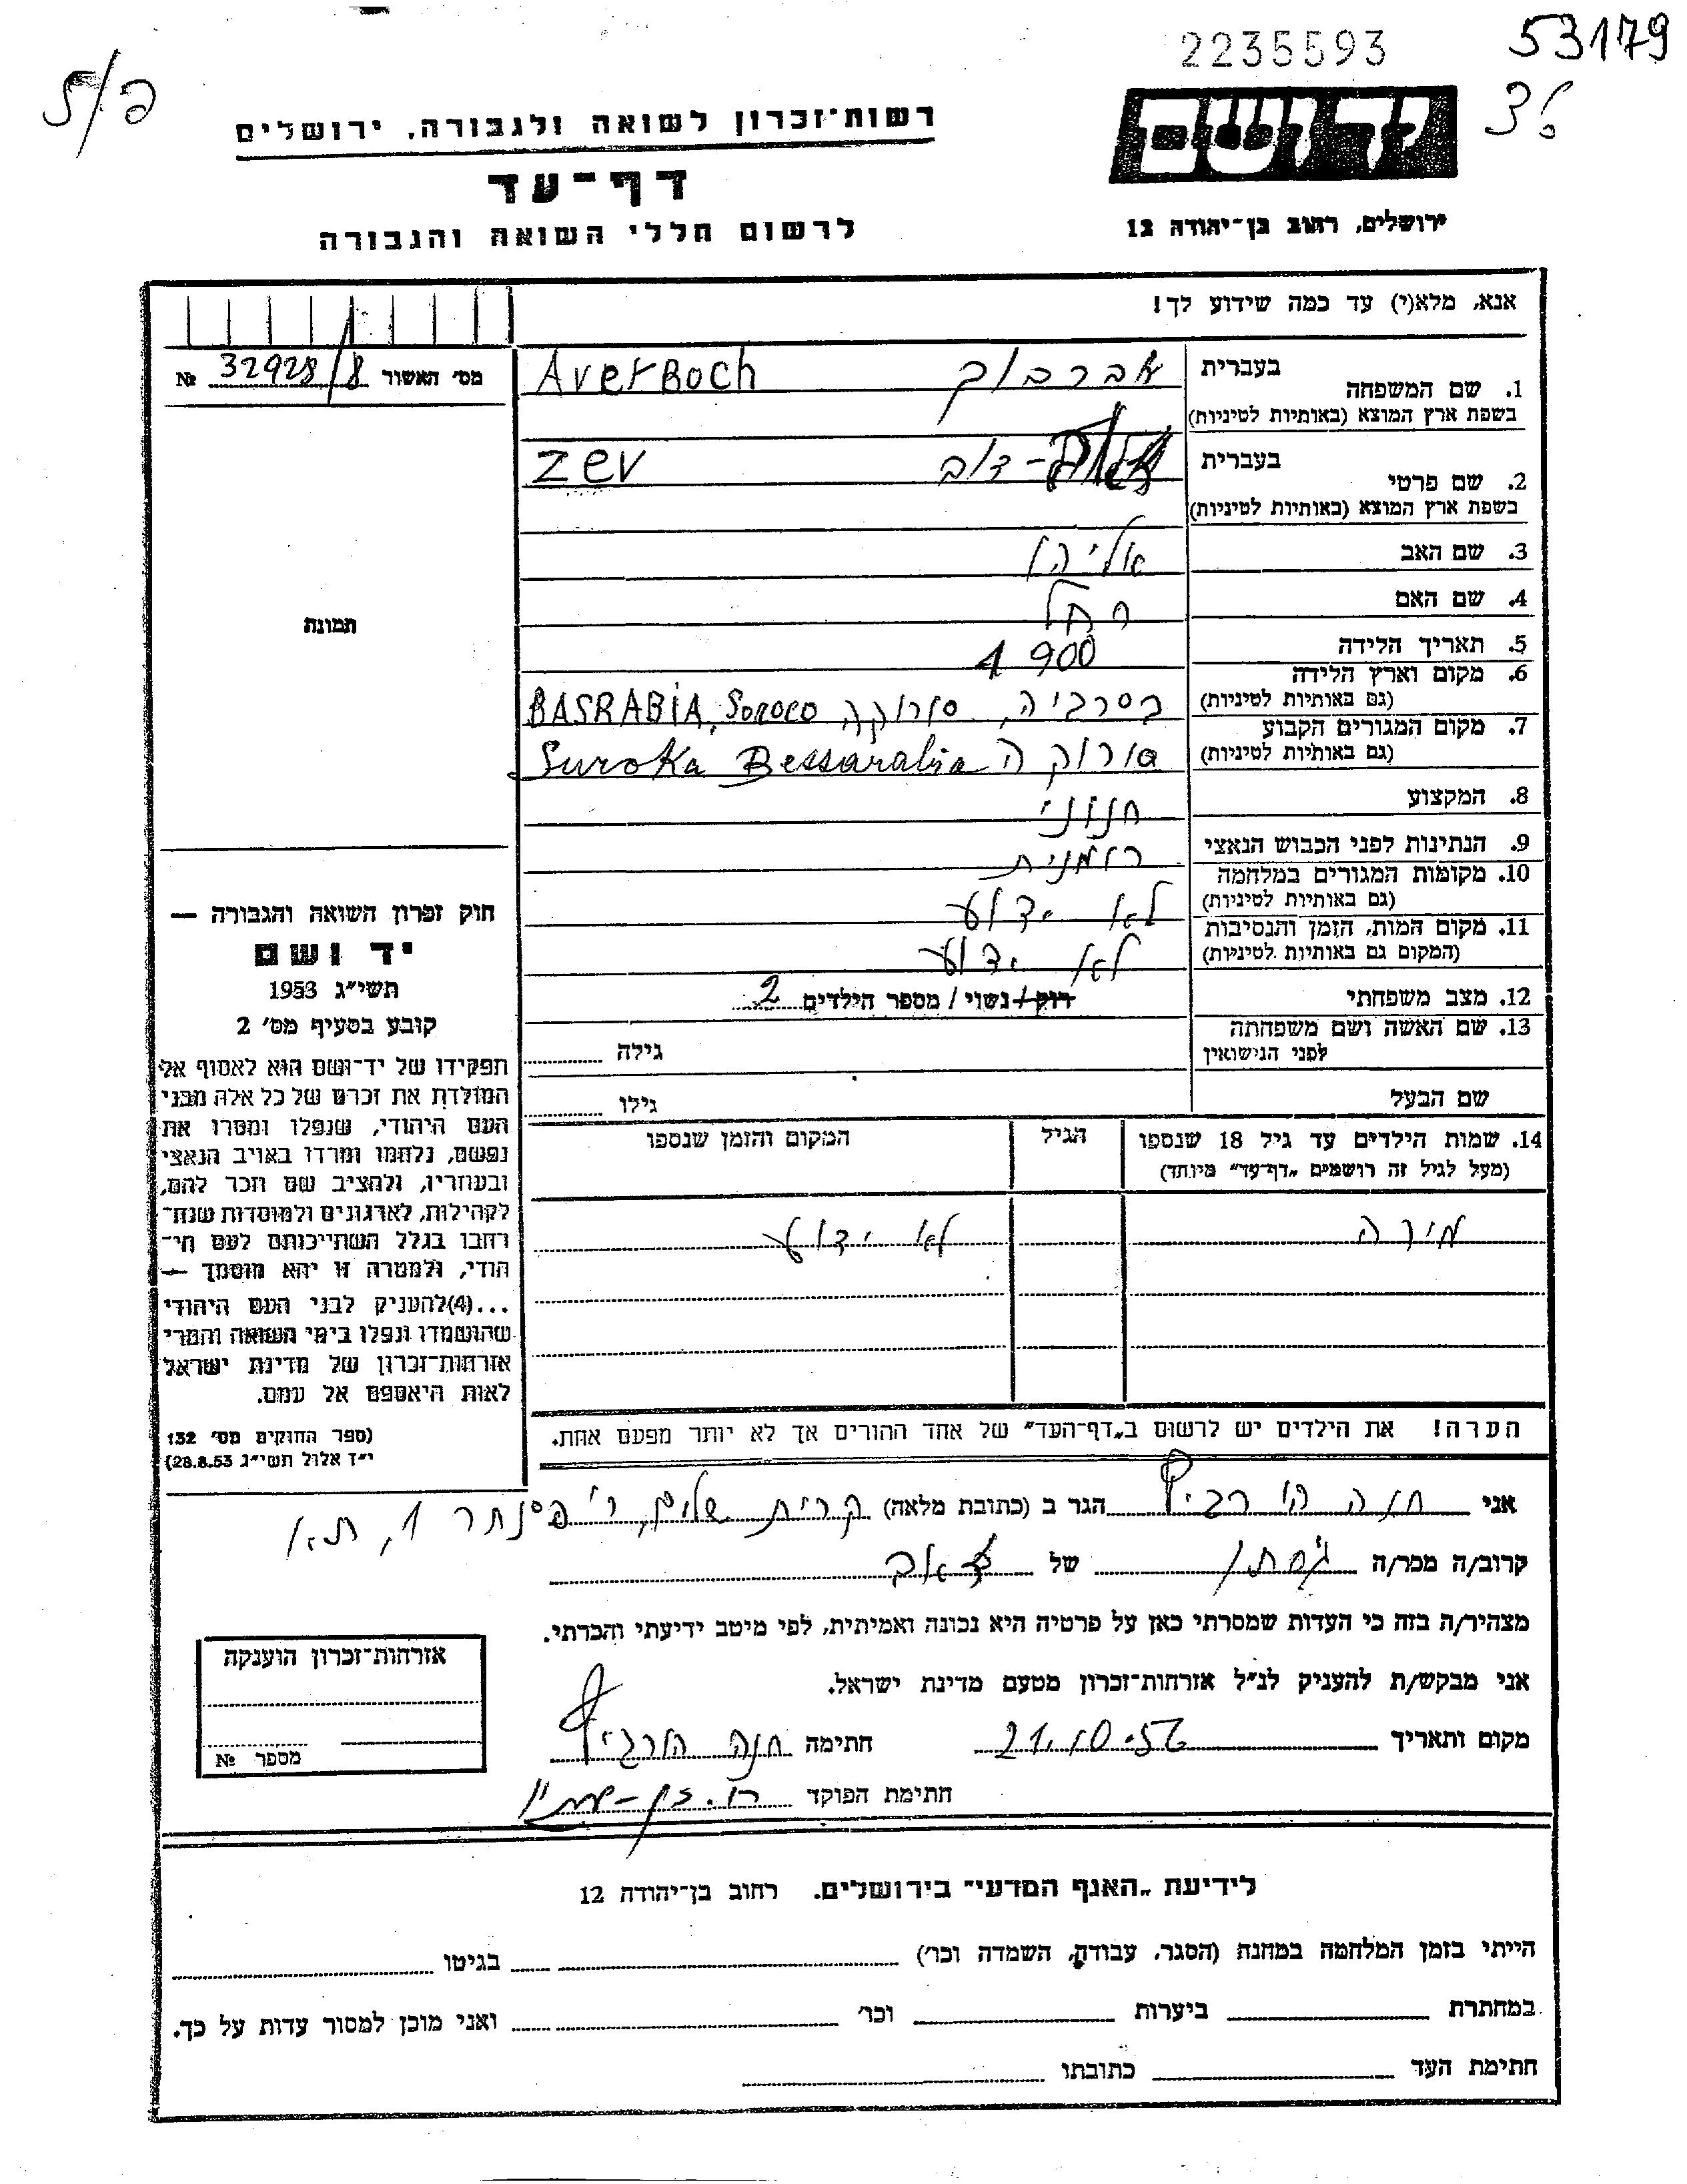 2235593
53179
רשות־זכרון לשואה ולגבורה, ירושלים
דף־עד
לרשום חללי השואה והגבורה
יד ושם
ירושלים, רחוב בן־יהודה 12
אנא, מלא(י) עד כמה שידוע לך!
מס׳ האשור 32928/8 №
תמונה
1. שם המשפחה בעברית אברבוך Averboch
בשפת ארץ המוצא (באותיות לטיניות)
2. שם פרטי בעברית דוב Zev
בשפת ארץ המוצא (באותיות לטיניות)
3. שם האב אליהו
4. שם האם רחל
5. תאריך הלידה 1900
6. מקום וארץ הלידה בסרביה, סורוקה BASRABIA, Soroco
(גם באותיות לטיניות)
7. מקום המגורים הקבוע סורוקה Suroka Bessarabia
(גם באותיות לטיניות)
8. המקצוע חנוני
9. הנתינות לפני הכבוש הנאצי רומנית
10. מקומות המגורים במלחמה לא ידוע
(גם באותיות לטיניות)
11. מקום המות, הזמן והנסיבות לא ידוע
(המקום גם באותיות לטיניות)
12. מצב משפחתי רוק / נשוי / מספר הילדים 2
13. שם האשה ושם משפחתה
לפני הנישואין גילה
שם הבעל גילו
14. שמות הילדים עד גיל 18 שנספו הגיל המקום והזמן שנספו
(מעל לגיל זה רושמים „דף־עד״ מיוחד)
מירה לא ידוע
הערה! את הילדים יש לרשום ב„דף־העד״ של אחד ההורים אך לא יותר מפעם אחת.
חוק זכרון השואה והגבורה —
יד ושם
תשי״ג 1953
קובע בסעיף מס׳ 2
תפקידו של יד־ושם הוא לאסוף אל
המולדת את זכרם של כל אלה מבני
העם היהודי, שנפלו ומסרו את
נפשם, נלחמו ומרדו באויב הנאצי
ובעוזריו, ולהציב שם וזכר להם,
לקהילות, לארגונים ולמוסדות שנח־
רבו בגלל השתייכותם לעם הי־
הודי, ולמטרה זו יהא מוסמך —
...(4)להעניק לבני העם היהודי
שהושמדו ונפלו בימי השואה והמרי
אזרחות־זכרון של מדינת ישראל
לאות היאספם אל עמם.
(ספר החוקים מס׳ 132
י״ד אלול תשי״ג 28.8.53)
אני חנה הורביץ הגר ב (כתובת מלאה) קרית שלום, ר׳ פסנתר 1, ת״א
קרוב/ה מכר/ה גיסתו של זאב
מצהיר/ה בזה כי העדות שמסרתי כאן על פרטיה היא נכונה ואמיתית, לפי מיטב ידיעתי והכרתי.
אני מבקש/ת להעניק לנ״ל אזרחות־זכרון מטעם מדינת ישראל.
מקום ותאריך 21.10.56 חתימה חנה הורביץ
חתימת הפוקד
אזרחות־זכרון הוענקה
מספר №
לידיעת „האגף המדעי״ בירושלים. רחוב בן־יהודה 12
הייתי בזמן המלחמה במחנה (הסגר, עבודה, השמדה וכו׳) בגיטו
במחתרת ביערות וכו׳ ואני מוכן למסור עדות על כך.
חתימת העד כתובתו